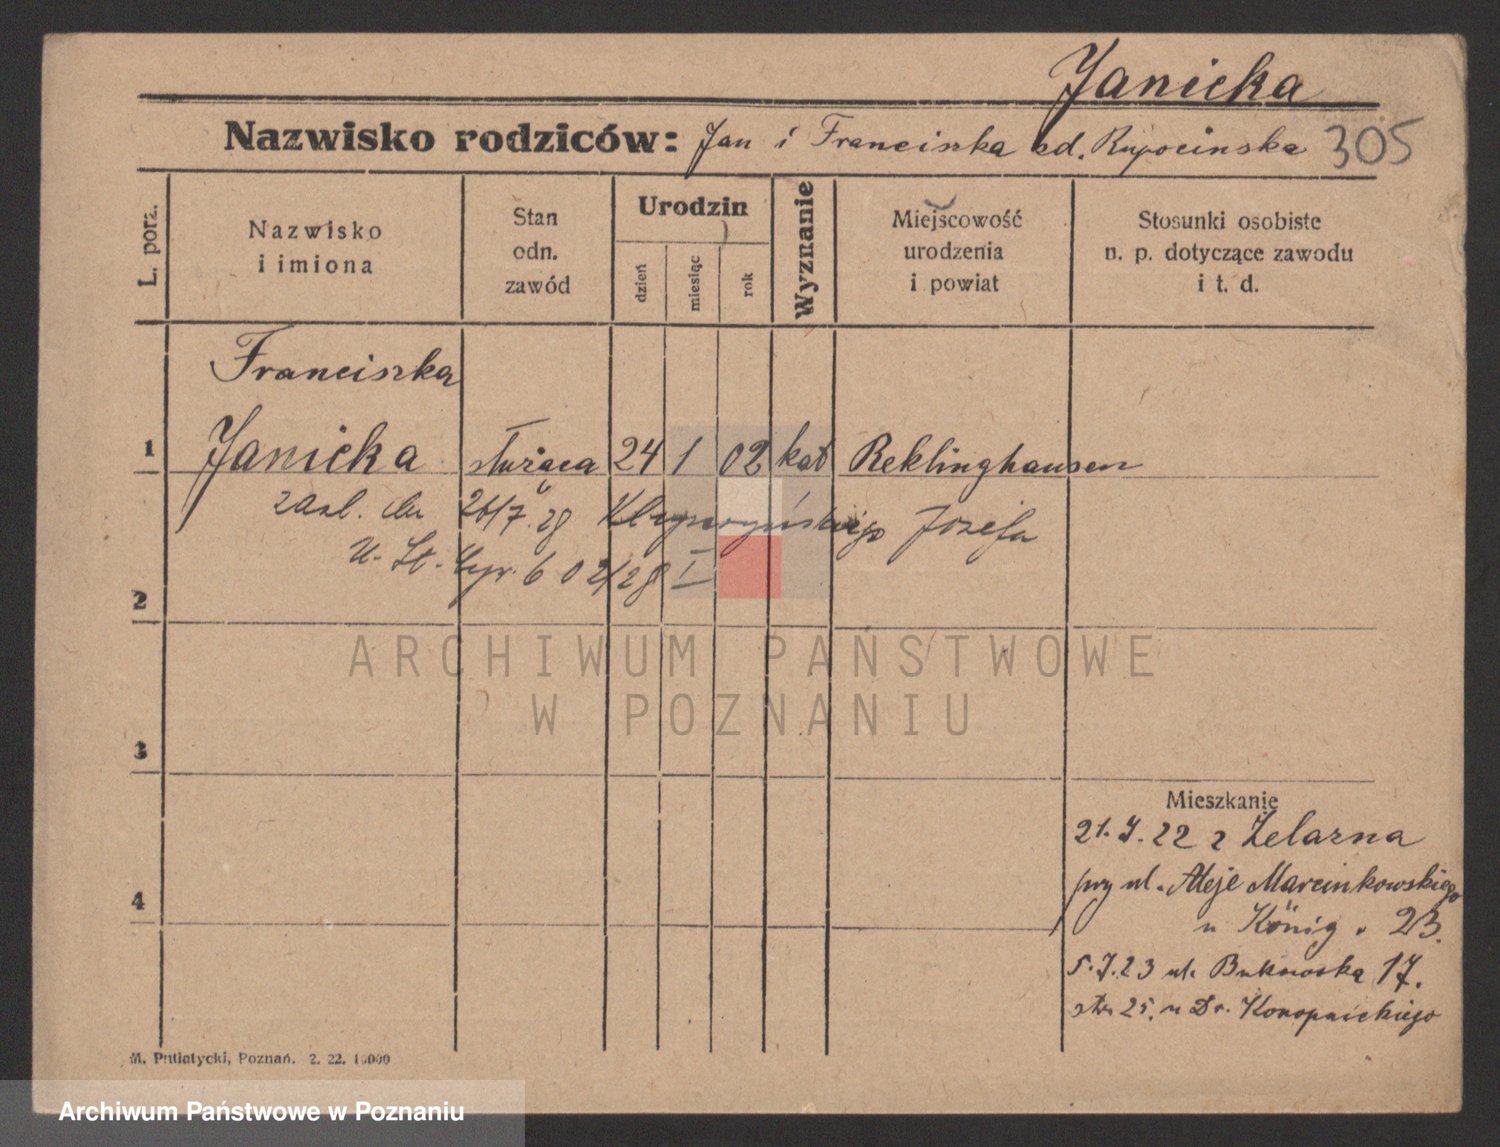 Janicka
Nazwisko rodziców: Jan i Franciszka Rupocinska 305
L. porz.
Nazwisko
i imiona
Stan
odn.
zawód
Urodzin
dzień
miesiąc
rok
Wyznanie
Miejscowość
urodzenia
i powiat
Stosunki osobiste
n. p. dotyczące zawodu
i t. d.
Franciszka
1 Janicka służąca 24 1 02 kat Reklinghausen
zasl. 26/7. 28 Józefa
U. St. 602/28 I
2
ARCHIWUM PAŃSTWOWE
W POZNANIU
3
Mieszkanie
21. I. 22 z Żelazna
przy ul. Aleje Marcinkowskiego
4
u König 23.
5. I. 23 ul. Bukowska 17.
25. u Dr. Konopnickiego
M. Putiatycki, Poznań. 2. 22. 10000
Archiwum Państwowe w Poznaniu